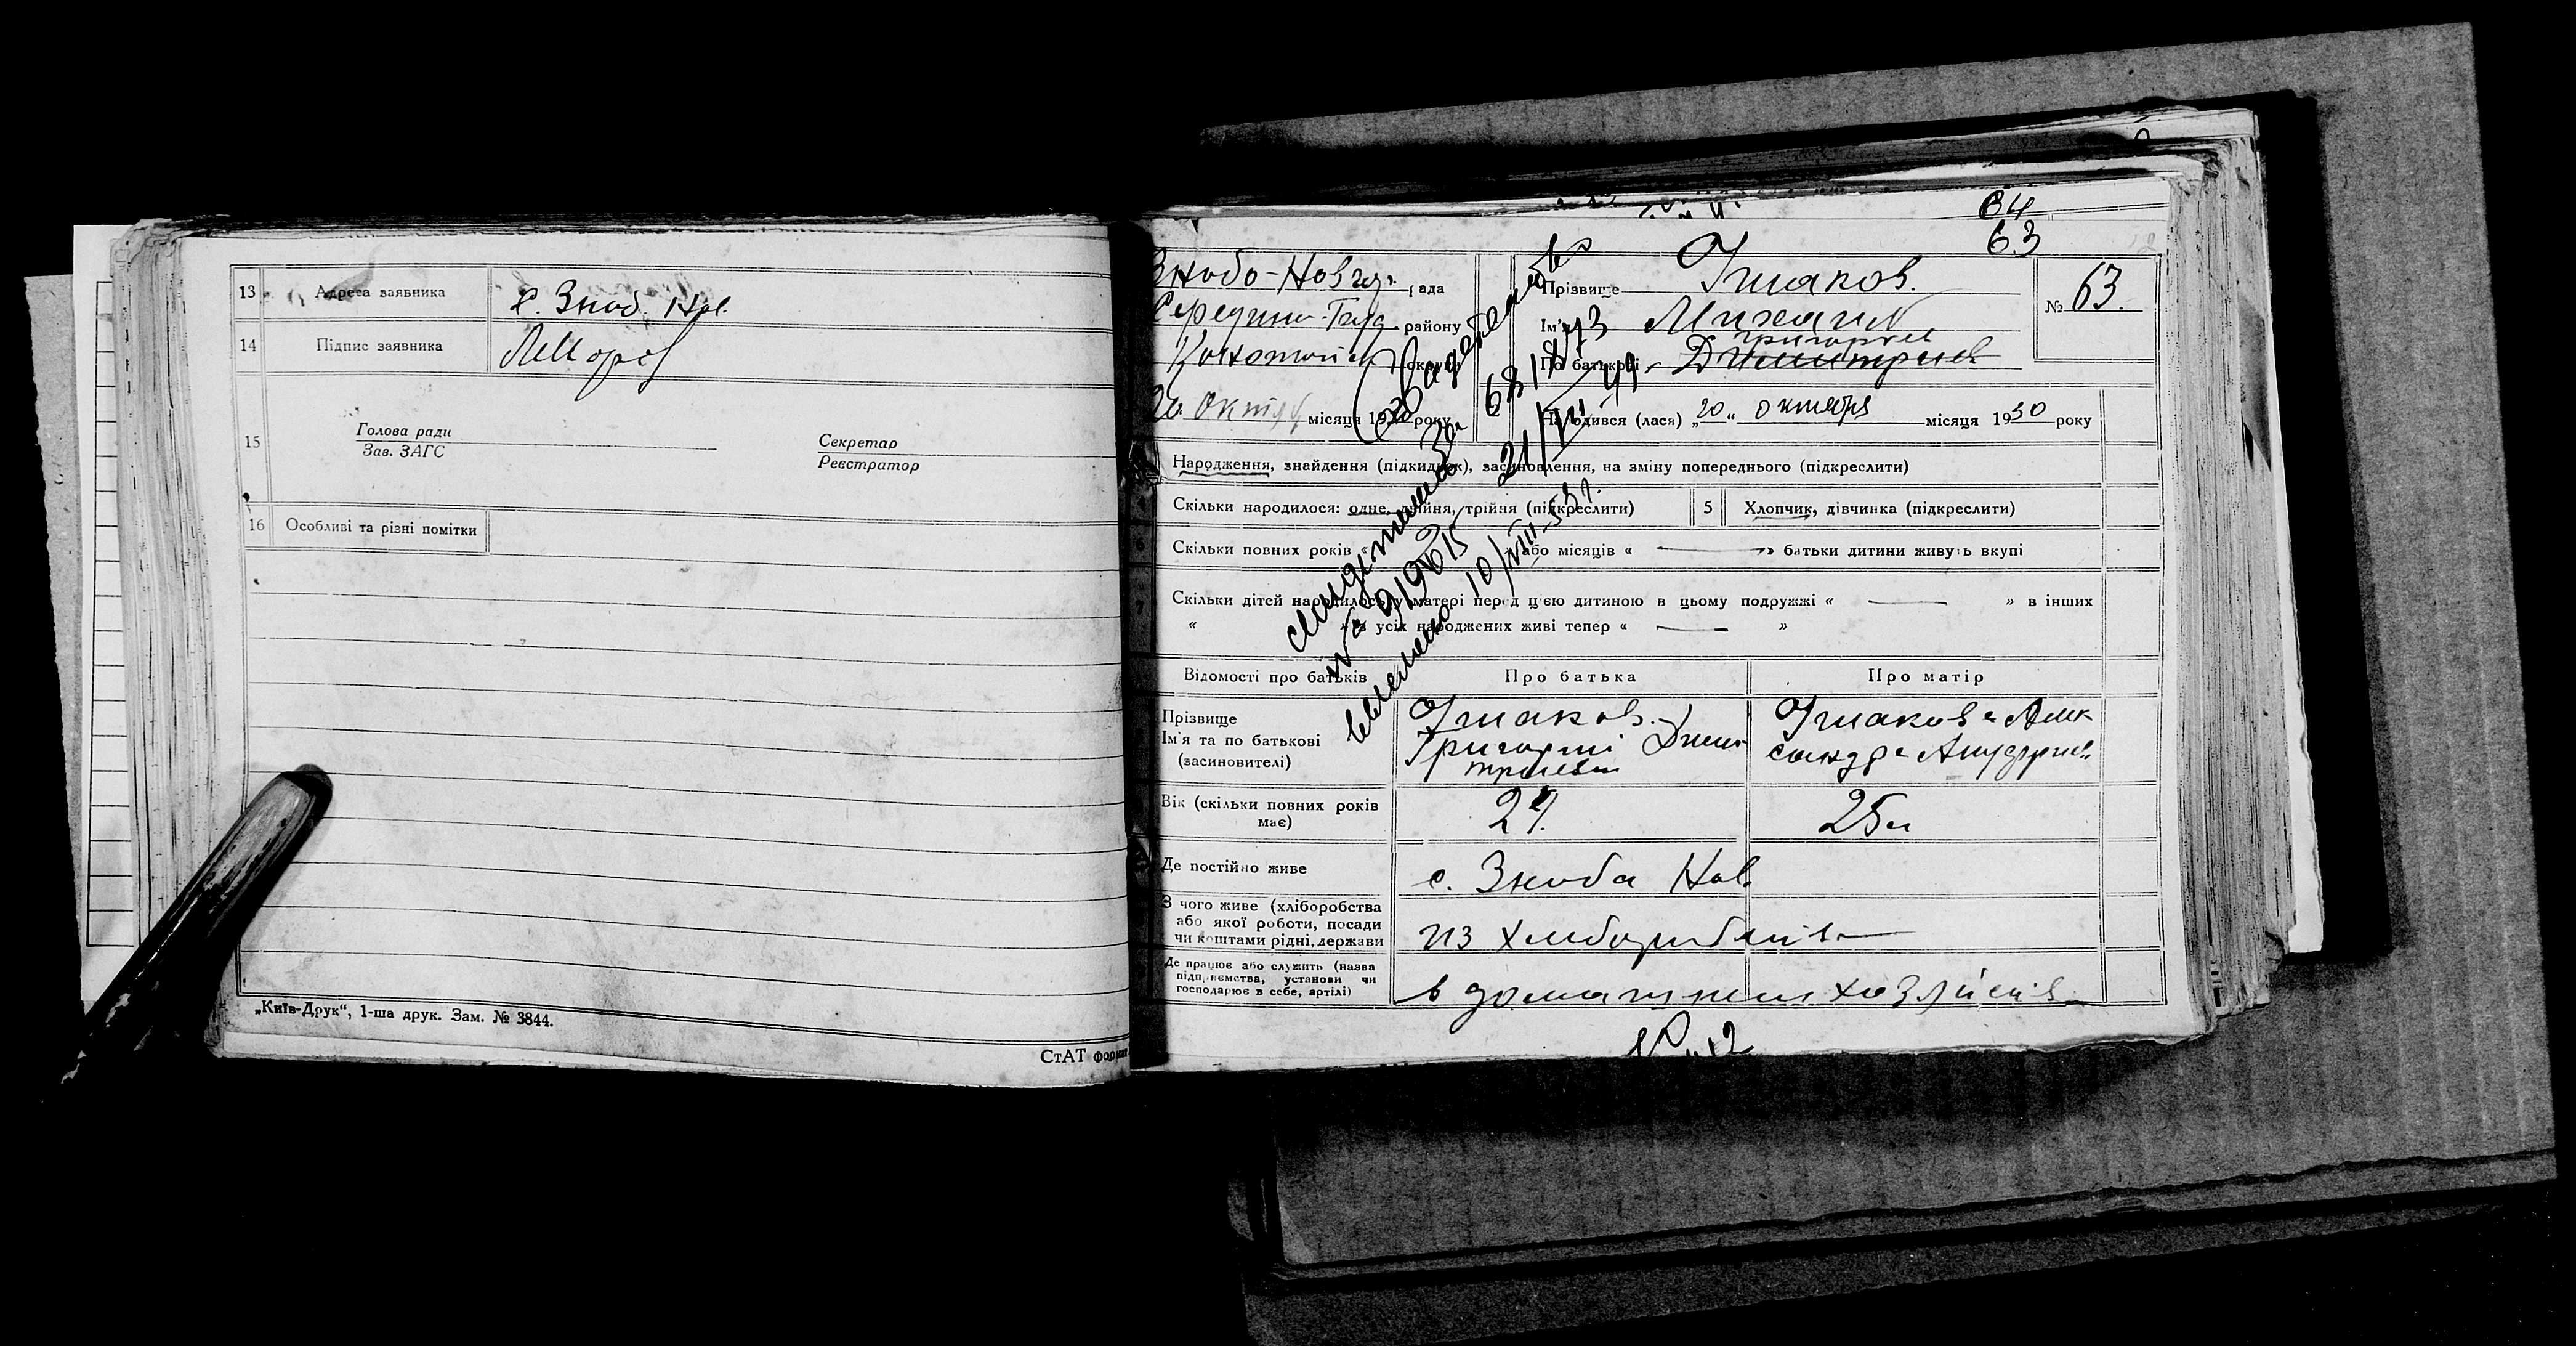 13 Адреса заявника с. Зноб Нов.
14 Підпис заявника
15 Голова ради
Зав. ЗАГС
Секретар
Реєстратор
16 Особливі та різні помітки
„Київ-Друк“, 1-ша друк. Зам. № 3844.
СтАТ форма
64
63
Знобо-Новгор. рада
Середино-Буд. району
округи
20 Октяб місяця 1930 року
Прізвище Ушаков.
Ім'я Михаил
Григорьев
По батькові Дмитриев
№ 63.
Народився (лася) „20„ октября місяця 1930 року
Народження, знайдення (підкидьок), засиновлення, на зміну попереднього (підкреслити)
Скільки народилося: одне, двійня, трійня (підкреслити)
5 Хлопчик, дівчинка (підкреслити)
Скільки повних років « або місяців « — » батьки дитини живуть вкупі
Скільки дітей народилось у матері перед цією дитиною в цьому подружжі « — » в інших
« » з усіх народжених живі тепер « — »
21/VII 49
№ 919615
10/VIII-53г.
Відомості про батьків
Про батька
Про матір
Прізвище
Ім'я та по батькові
(засиновителі)
Ушаков.
Григорий Дмит
триевич
Ушакова Алек
сандра
Вік (скільки повних років
має)
27.
25 л
Де постійно живе с. Зноба Нов.
З чого живе (хліборобства
або якої роботи, посади
чи коштами рідні, держави
из хлиборобства
Де працює або служить (назва
підприємства, установи чи
господарює в себе, артілі)
в домашнем хозяйств